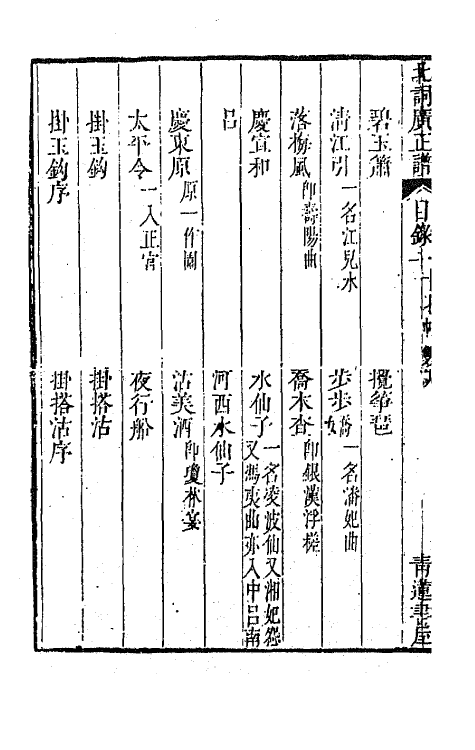 北詞廣正譜 目錄 十七帙 雙調 青蓮書屋
碧玉簫 攪箏琶
清江引 一名江兒水 步步嬌 一名潘妃曲
落梅風 即壽陽曲 喬木查 即銀漢浮槎
慶宣和 水仙子 一名凌波仙又湘妃怨又馮夷曲亦入中呂南
呂 河西水仙子
慶東原 原一作園 沽美酒 即瓊林宴
太平令 一入正宮 夜行船
掛玉鈎 掛搭沽
掛玉鈎序 掛搭沽序